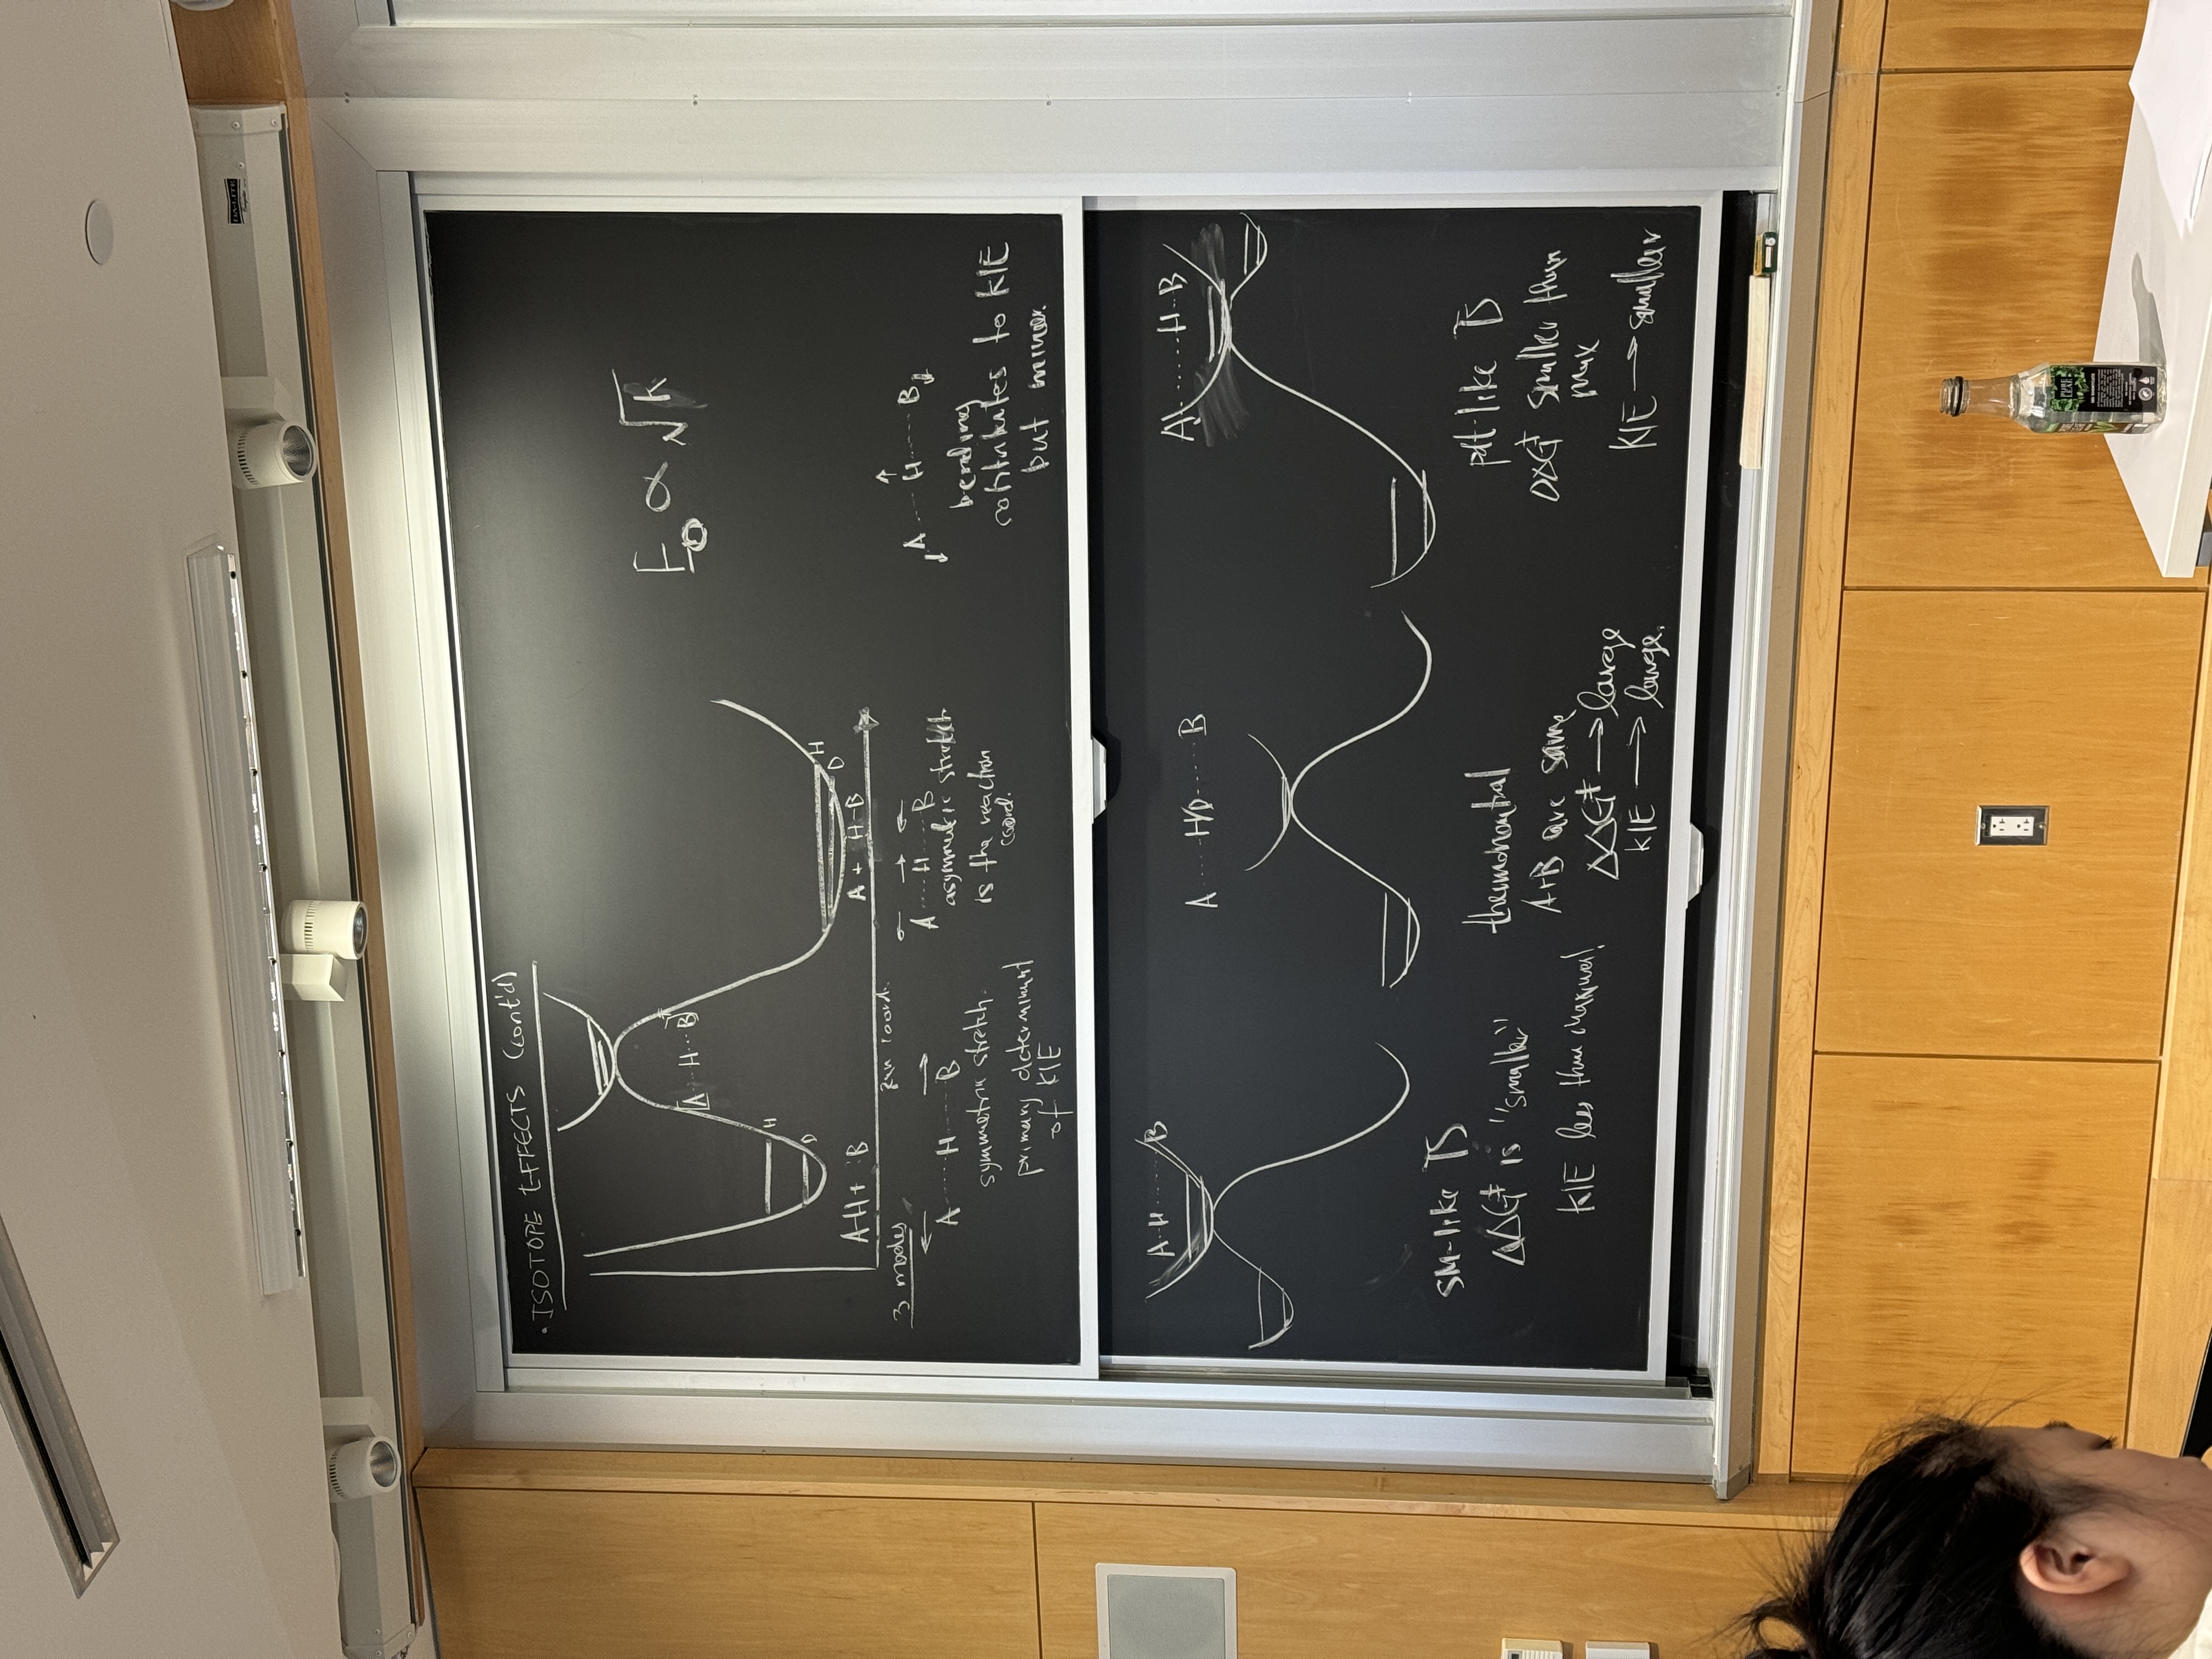 · ISOTOPE EFFECTS (cont'd)
[A ··· H ··· B]
E₀ ∝ √k
H
D
H
D
A-H + :B
A + H-B
rxn coord.
3 modes
A ····· H ····· B
symmetric stretch.
primary determinant
of KIE
A ···· H ···· B
asymmetric stretch
is the reaction
coord.
A ···· H ···· B
bending
contributes to KIE
but minor.
A··H ······ B
SM-like TS
ΔΔG‡ is "smaller"
KIE less than maximal!
A ····· H/D ····· B
thermoneutral
A+B are same
ΔΔG‡ → large
KIE → large.
A ······ H··B
pdt-like TS
ΔΔG‡ smaller than
max
KIE → smaller
DA-LITE
PURE
LEAF